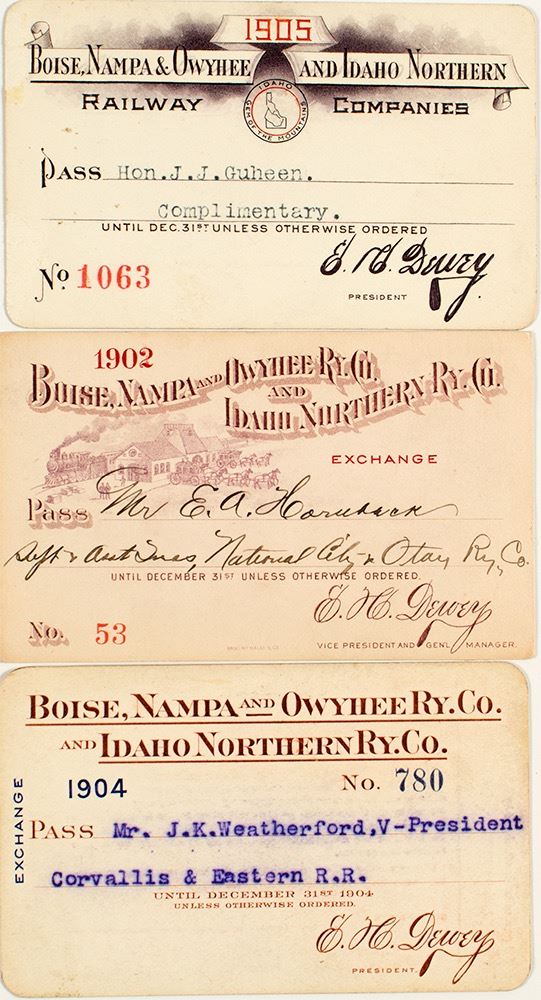 1905
BOISE, NAMPA & OWYHEE AND IDAHO NORTHERN
RAILWAY COMPANIES
IDAHO
GEM OF THE MOUNTAINS
PASS Hon. J. J. Guheen.
Complimentary.
UNTIL DEC. 31ST UNLESS OTHERWISE ORDERED
No 1063
E. H. Dewey
PRESIDENT
1902
BOISE, NAMPA AND OWYHEE RY. CO.
AND
IDAHO NORTHERN RY. CO.
EXCHANGE
Pass Mr E. A. Hornback
Supt & Treas, National City & Otay Ry, Co.
UNTIL DECEMBER 31ST UNLESS OTHERWISE ORDERED.
E. H. Dewey
No. 53
VICE PRESIDENT AND GENL MANAGER.
BOISE, NAMPA AND OWYHEE RY. CO.
AND IDAHO NORTHERN RY. CO.
EXCHANGE
1904 No. 780
PASS Mr. J.K.Weatherford, V-President
Corvallis & Eastern R.R.
UNTIL DECEMBER 31ST 1904
UNLESS OTHERWISE ORDERED.
E. H. Dewey
PRESIDENT.